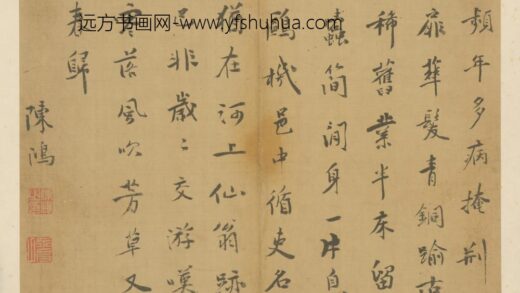 远方书画网-www.lyfshuhua.com/
頻年多病掩荆
扉華髮青銅踰古
稀舊業半床留
蠹簡閒身一片自
鷗機邑中循吏名
猶在河上仙翁跡
是非歲々交游嘆
零落風吹芳草又
春歸
陳鴻